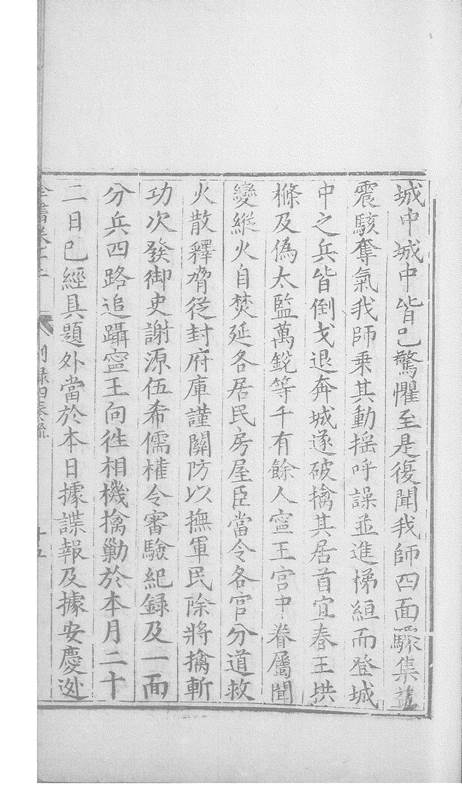 城中城中皆已驚懼至是復聞我師四面驟集益
震駭奪氣我師乘其動搖呼譟並進梯絙而登城
中之兵皆倒戈退奔城遂破擒其居首宜春王拱
樤及偽太監萬銳等千有餘人寧王宮中眷屬聞
變縱火自焚延各居民房屋臣當令各官分道救
火散釋脅從封府庫謹關防以撫軍民除將擒斬
功次發御史謝源伍希儒權令審驗紀録及一面
分兵四路追躡寧王向徃相機擒勦於本月二十
二日已經具題外當於本日據諜報及據安慶迯
全書卷十二 别録四奏疏 十五